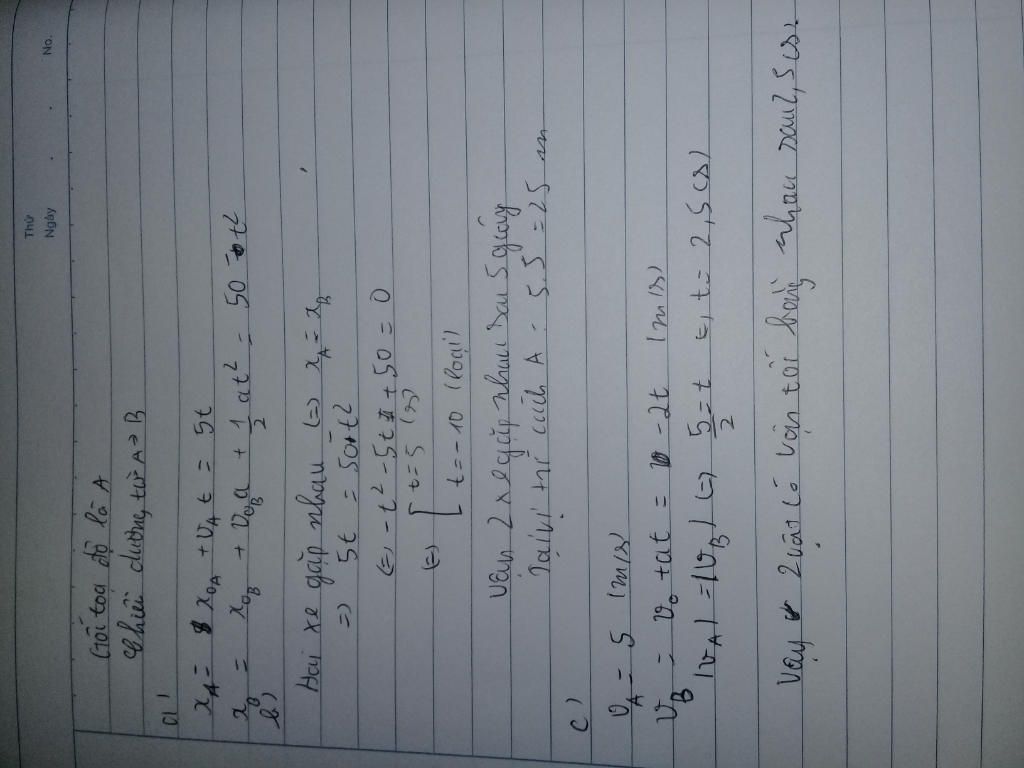 Thứ
Ngày . . No.
Gốc toạ độ là A
Chiều dương từ A → B
a)
x_A = x_{0A} + v_A t = 5t
x_B = x_{0B} + v_{0B} a + 1/2 at² = 50 - t²
b)
Hai xe gặp nhau (=) x_A = x_B
=) 5t = 50 - t²
(=) -t² - 5t + 50 = 0
(=) [ t = 5 (s)
t = -10 (loại)
Vậy 2 xe gặp nhau sau 5 giây
Tại vị trí cách A : 5.5 = 25 m
c)
v_A = 5 (m/s)
v_B = v_0 + at = -2t (m/s)
|v_A| = |v_B| (=) 5/2 = t (=) t = 2,5 (s)
Vậy 2 vật có vận tốc bằng nhau sau 2,5 (s).